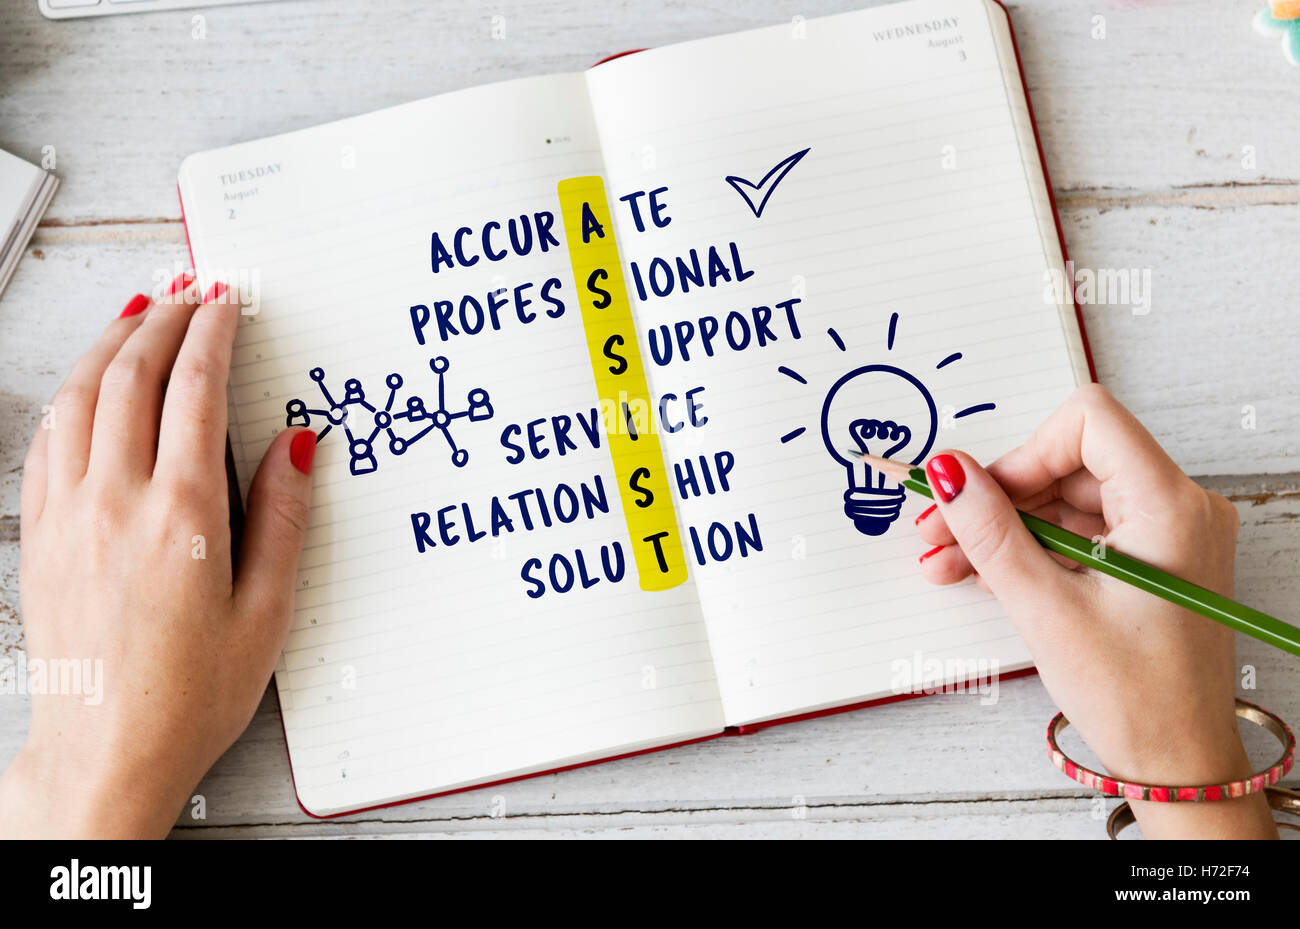 TUESDAY
August
2
WEDNESDAY
August
3
ACCURATE
PROFESSIONAL
SUPPORT
SERVICE
RELATIONSHIP
SOLUTION
alamy
alamy
a
a
a
a
alamy
Image ID: H72F74
www.alamy.com